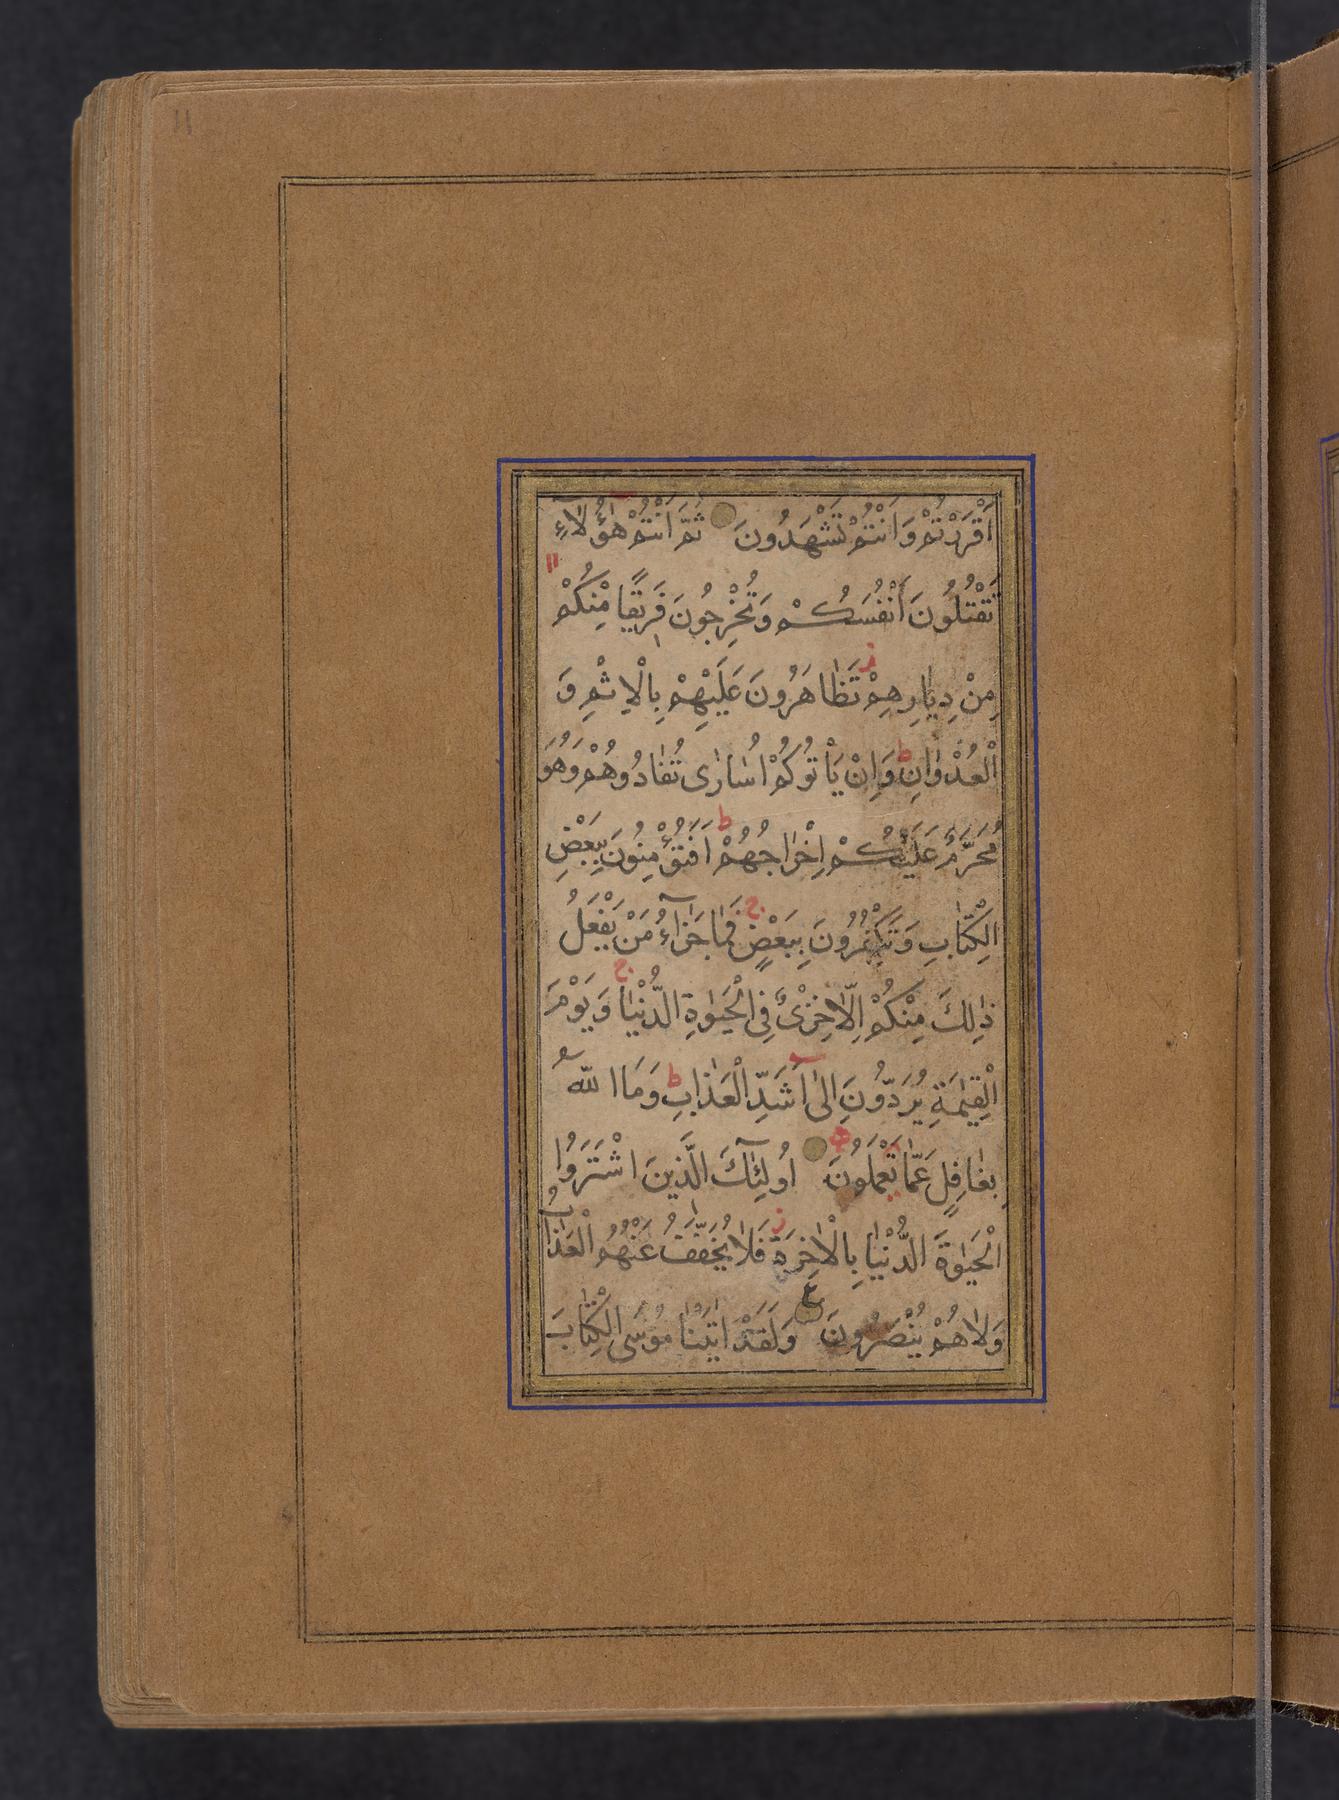 11
اَقْرَرْتُمْ وَاَنْتُمْ تَشْهَدُونَ ثُمَّ اَنْتُمْ هٰؤُلَاءِ
تَقْتُلُونَ اَنْفُسَكُمْ وَتُخْرِجُونَ فَرِيقًا مِنْكُمْ
مِنْ دِيَارِهِمْ تَظَاهَرُونَ عَلَيْهِمْ بِالْاِثْمِ وَ
الْعُدْوَانِ ط وَاِنْ يَأْتُوكُمْ اُسَارٰى تُفَادُوهُمْ وَهُوَ
مُحَرَّمٌ عَلَيْكُمْ اِخْرَاجُهُمْ ط اَفَتُؤْمِنُونَ بِبَعْضِ
الْكِتَابِ وَتَكْفُرُونَ بِبَعْضٍ ج فَمَا جَزَآءُ مَنْ يَفْعَلُ
ذٰلِكَ مِنْكُمْ اِلَّا خِزْىٌ فِى الْحَيٰوةِ الدُّنْيَا ج وَيَوْمَ
الْقِيٰمَةِ يُرَدُّونَ اِلٰى اَشَدِّ الْعَذَابِ ط وَمَا اللّٰهُ
بِغَافِلٍ عَمَّا تَعْمَلُونَ اُولٰئِكَ الَّذِينَ اشْتَرَوُا
الْحَيٰوةَ الدُّنْيَا بِالْاٰخِرَةِ ز فَلَا يُخَفَّفُ عَنْهُمُ الْعَذَابُ
وَلَا هُمْ يُنْصَرُونَ ع وَلَقَدْ اٰتَيْنَا مُوسَى الْكِتَابَ